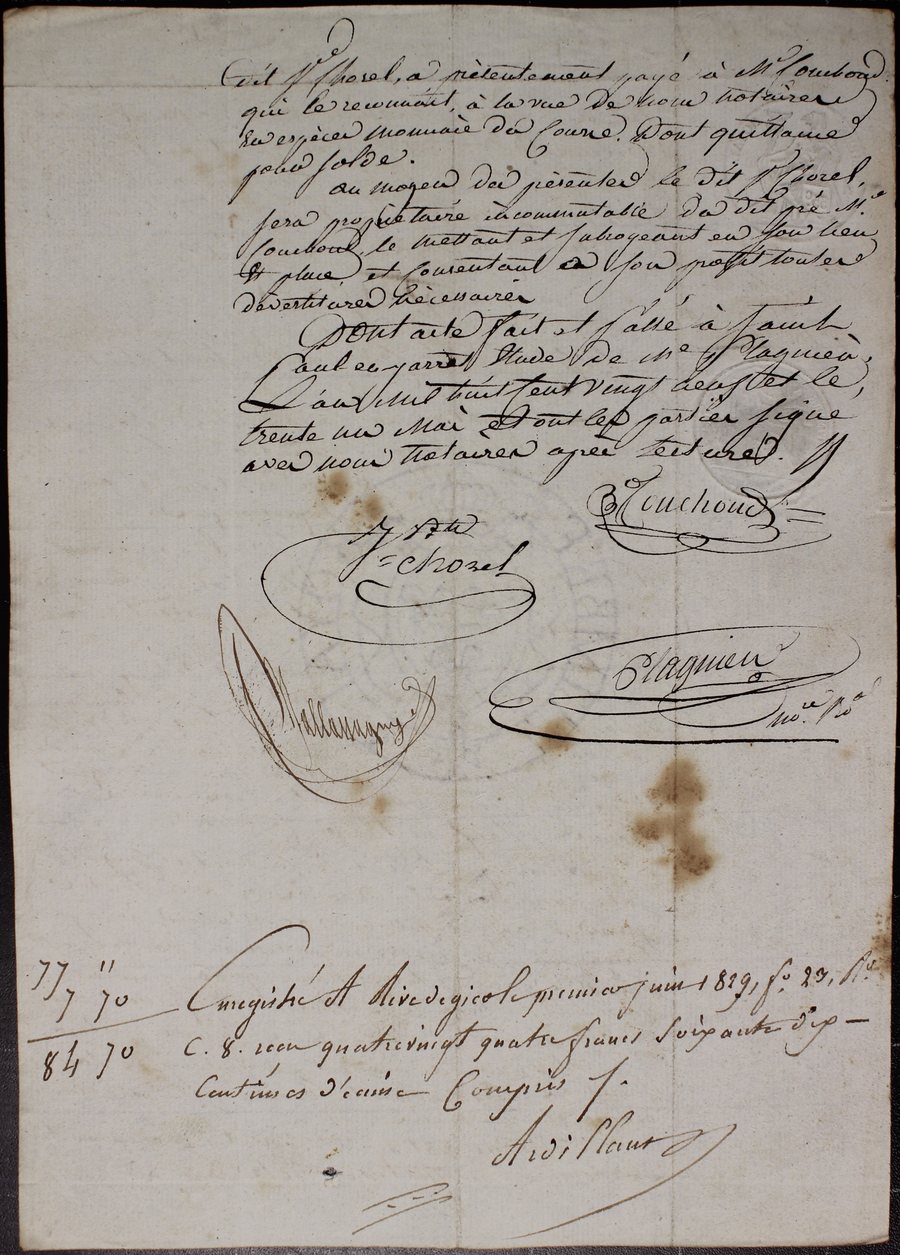 dit Sr. Chorel, a présentement payé à Mr. Couchoud
qui le reconnait, à la vue de nous notaires
en espèces monnaie du Cours. Dont quittance
pour solde.
au moyen des présentes le dit Sr. Chorel,
sera propriétaire incommutable du dit pré Mr.
Couchoud, le mettant et subrogeant en son lieu
et place, et consentant a son profit toutes
dévestitures nécessaires
Dont acte fait et Passé à Saint
Paul en jarret Etude de Me Plagnieu,
L'an Mil huit Cent vingt neuf et le
trente un Mai et ont les parties signé
avec nous Notaires après lecture.
Couchoud
Chorel
Plagnieu
nore. Ro.
77 "
7 70
84 70
Enregistré A Rivedegier le premier juin 1829, fo. 23, Ro.
C. 8. reçu quatrevingt quatre francs soixante dix
Centimes d'ecime Compris